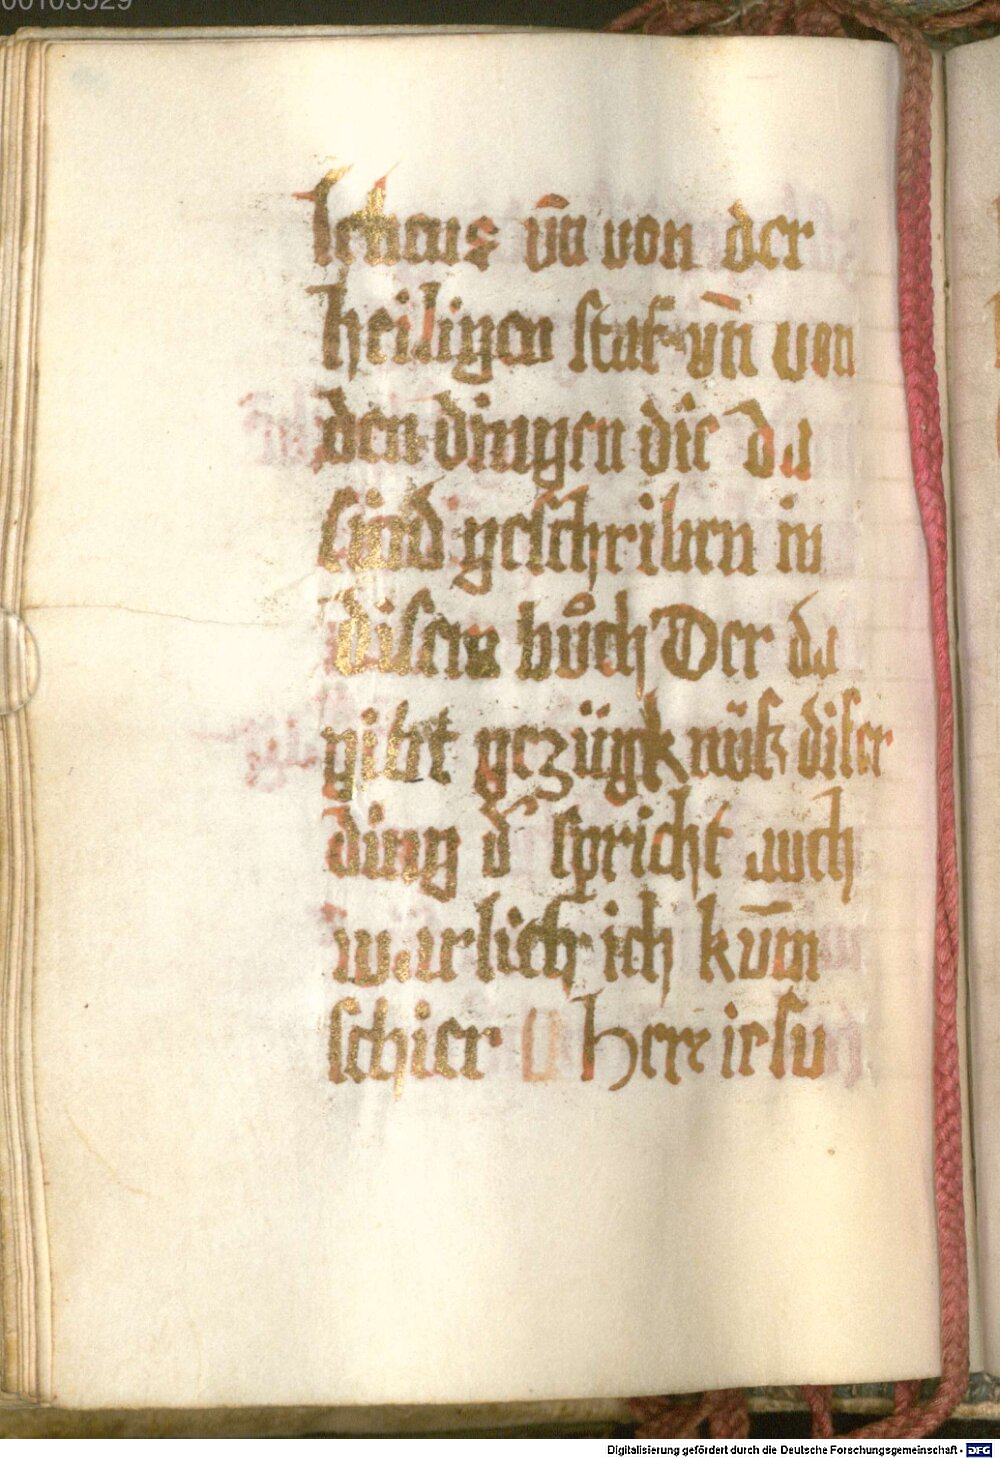 00103529
lebens vn̄ von der
heiligen stat vn̄ von
den dingen die da
sind geschriben in
disem bůch Der da
gibt gezügknüß diser
ding d' spricht auch
warlich ich kum̄
schier O herr iesu
Digitalisierung gefördert durch die Deutsche Forschungsgemeinschaft - DFG